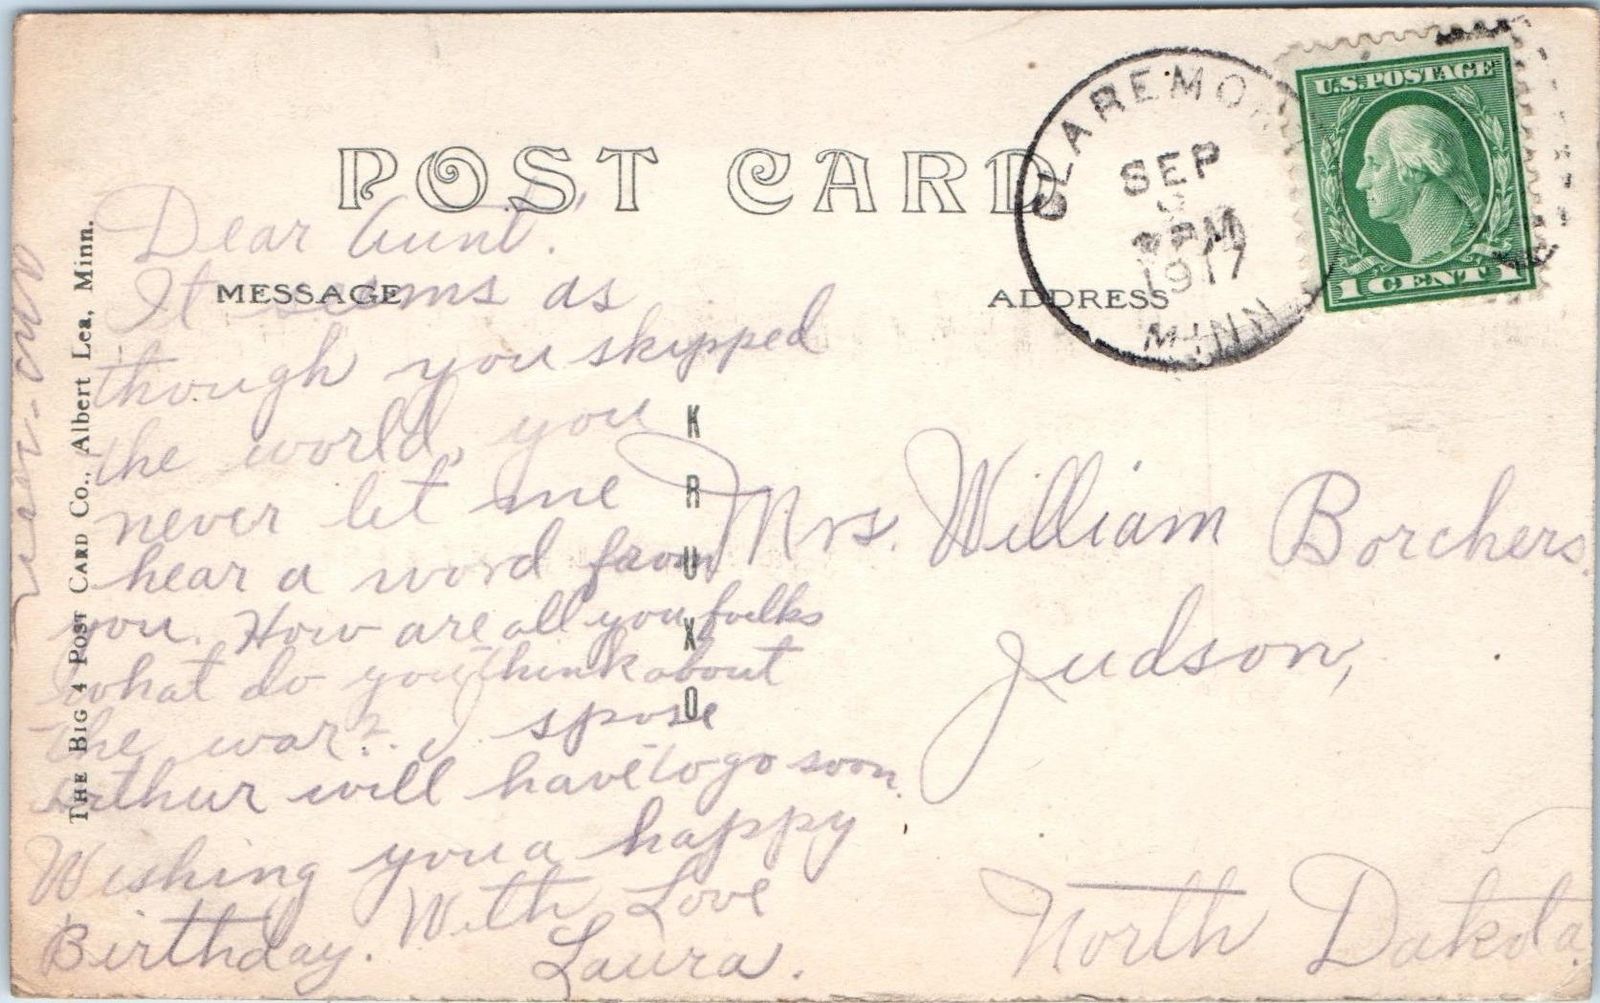 POST CARD
MESSAGE
ADDRESS
THE BIG 4 POST CARD CO., Albert Lea, Minn.
KRUXO
CLAREMONT
SEP
PM
1917
MINN
U.S. POSTAGE
1 CENT 1
Dear Aunt,
It seems as
though you skipped
the world, you
never let me
hear a word from
you. How are all you folks
what do you think about
the war? I spose
Arthur will have to go soon.
Wishing you a happy
Birthday. With Love
Laura.
Mrs. William Borchers.
Judson,
North Dakota.